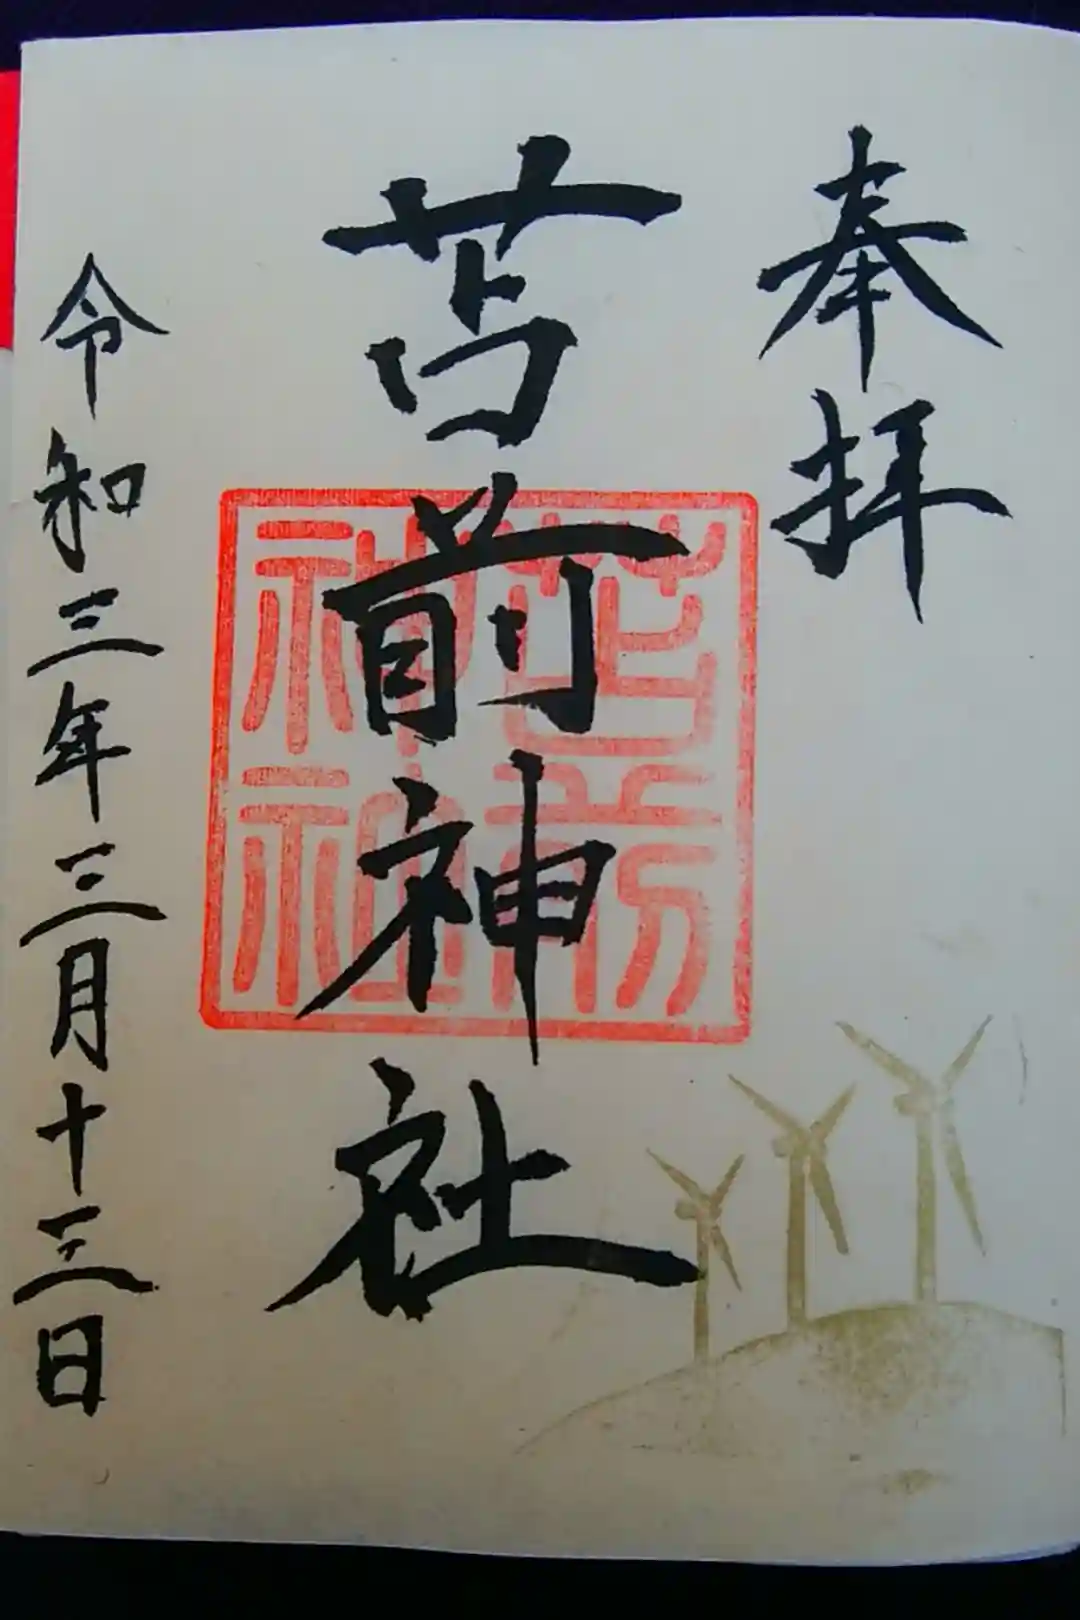 奉拝
苫前神社
苫前神社
令和三年三月十三日